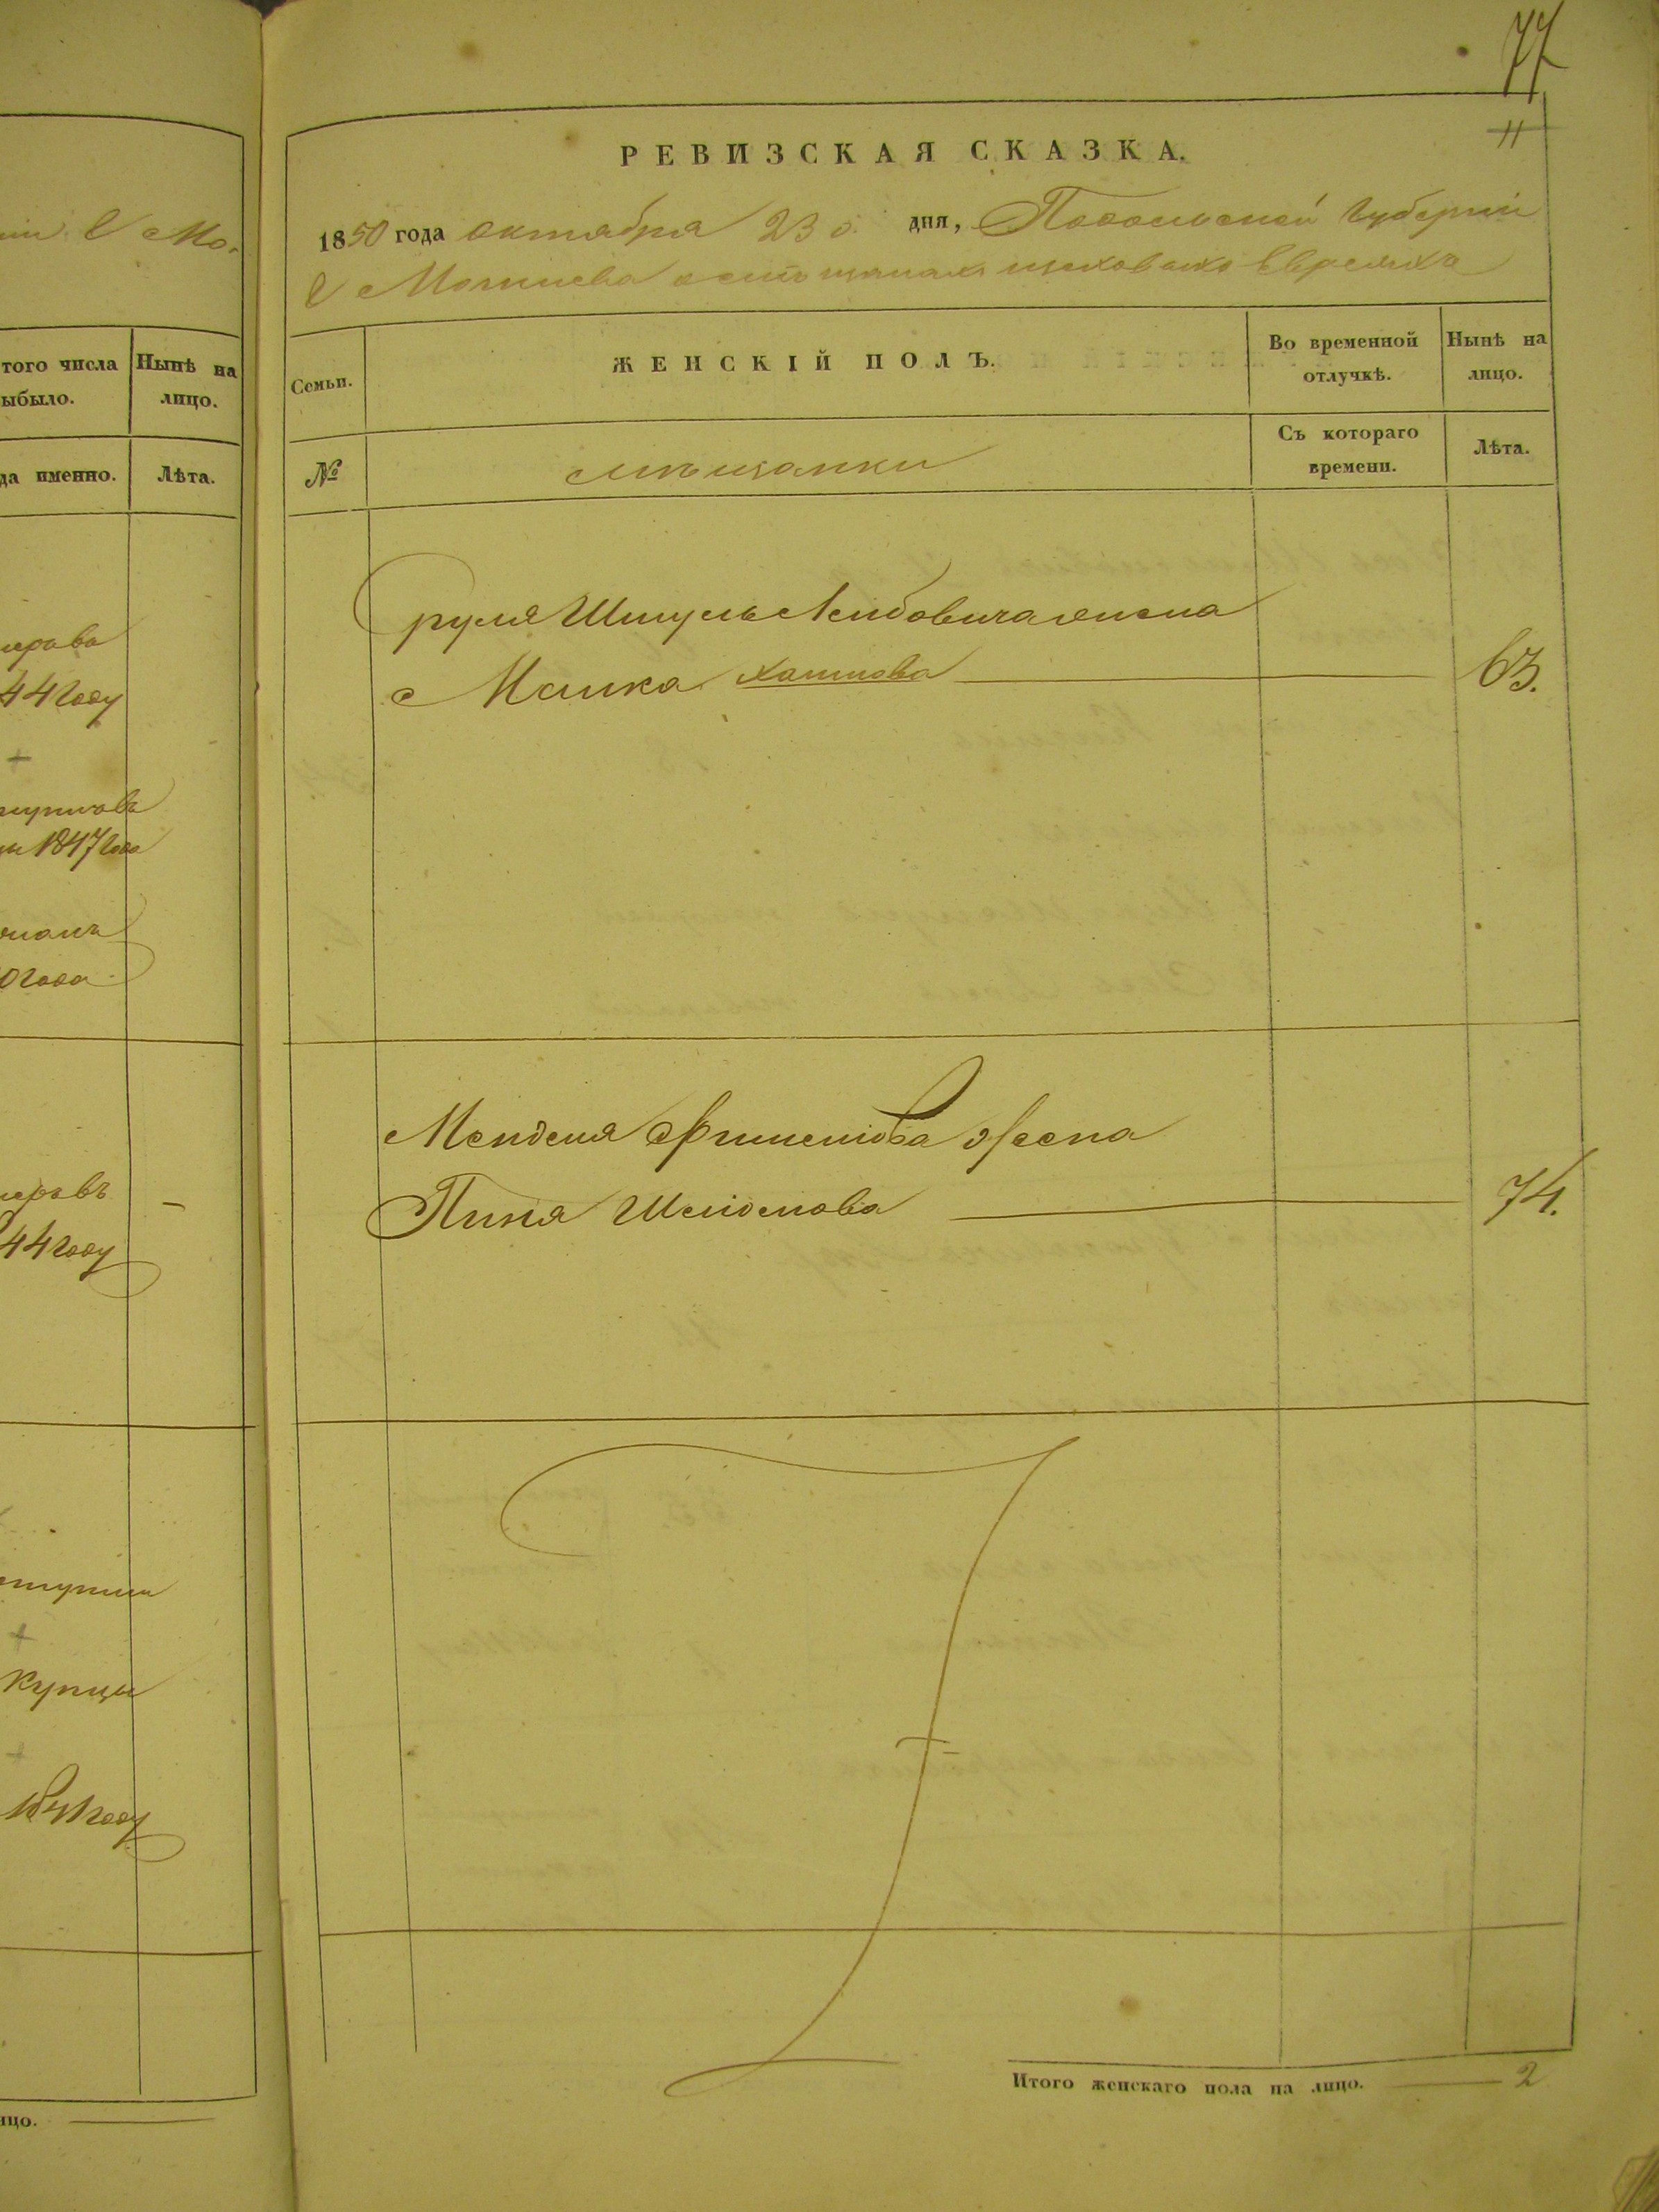 77
11
РЕВИЗСКАЯ СКАЗКА.
1850 года октября 23 д. дня, Подольской Губерніи
Г Могилева о мѣщанахъ цеховыхъ Евреяхъ
Семьи.
ЖЕНСКІЙ ПОЛЪ.
Во временной отлучкѣ.
Нынѣ на лицо.
№
мѣщанки
Съ котораго времени.
Лѣта.
Сруля Шмуль Лейбовича жена
Малка Хаимова 63.
Менделя жена
Пиня 74.
Итого женскаго пола на лицо. 2
ніи Г Мо-
того числа
ыбыло.
Нынѣ на
лицо.
да именно.
Лѣта.
44 году
1847 года
0 года
44 году
купцы
1841 году
ицо.